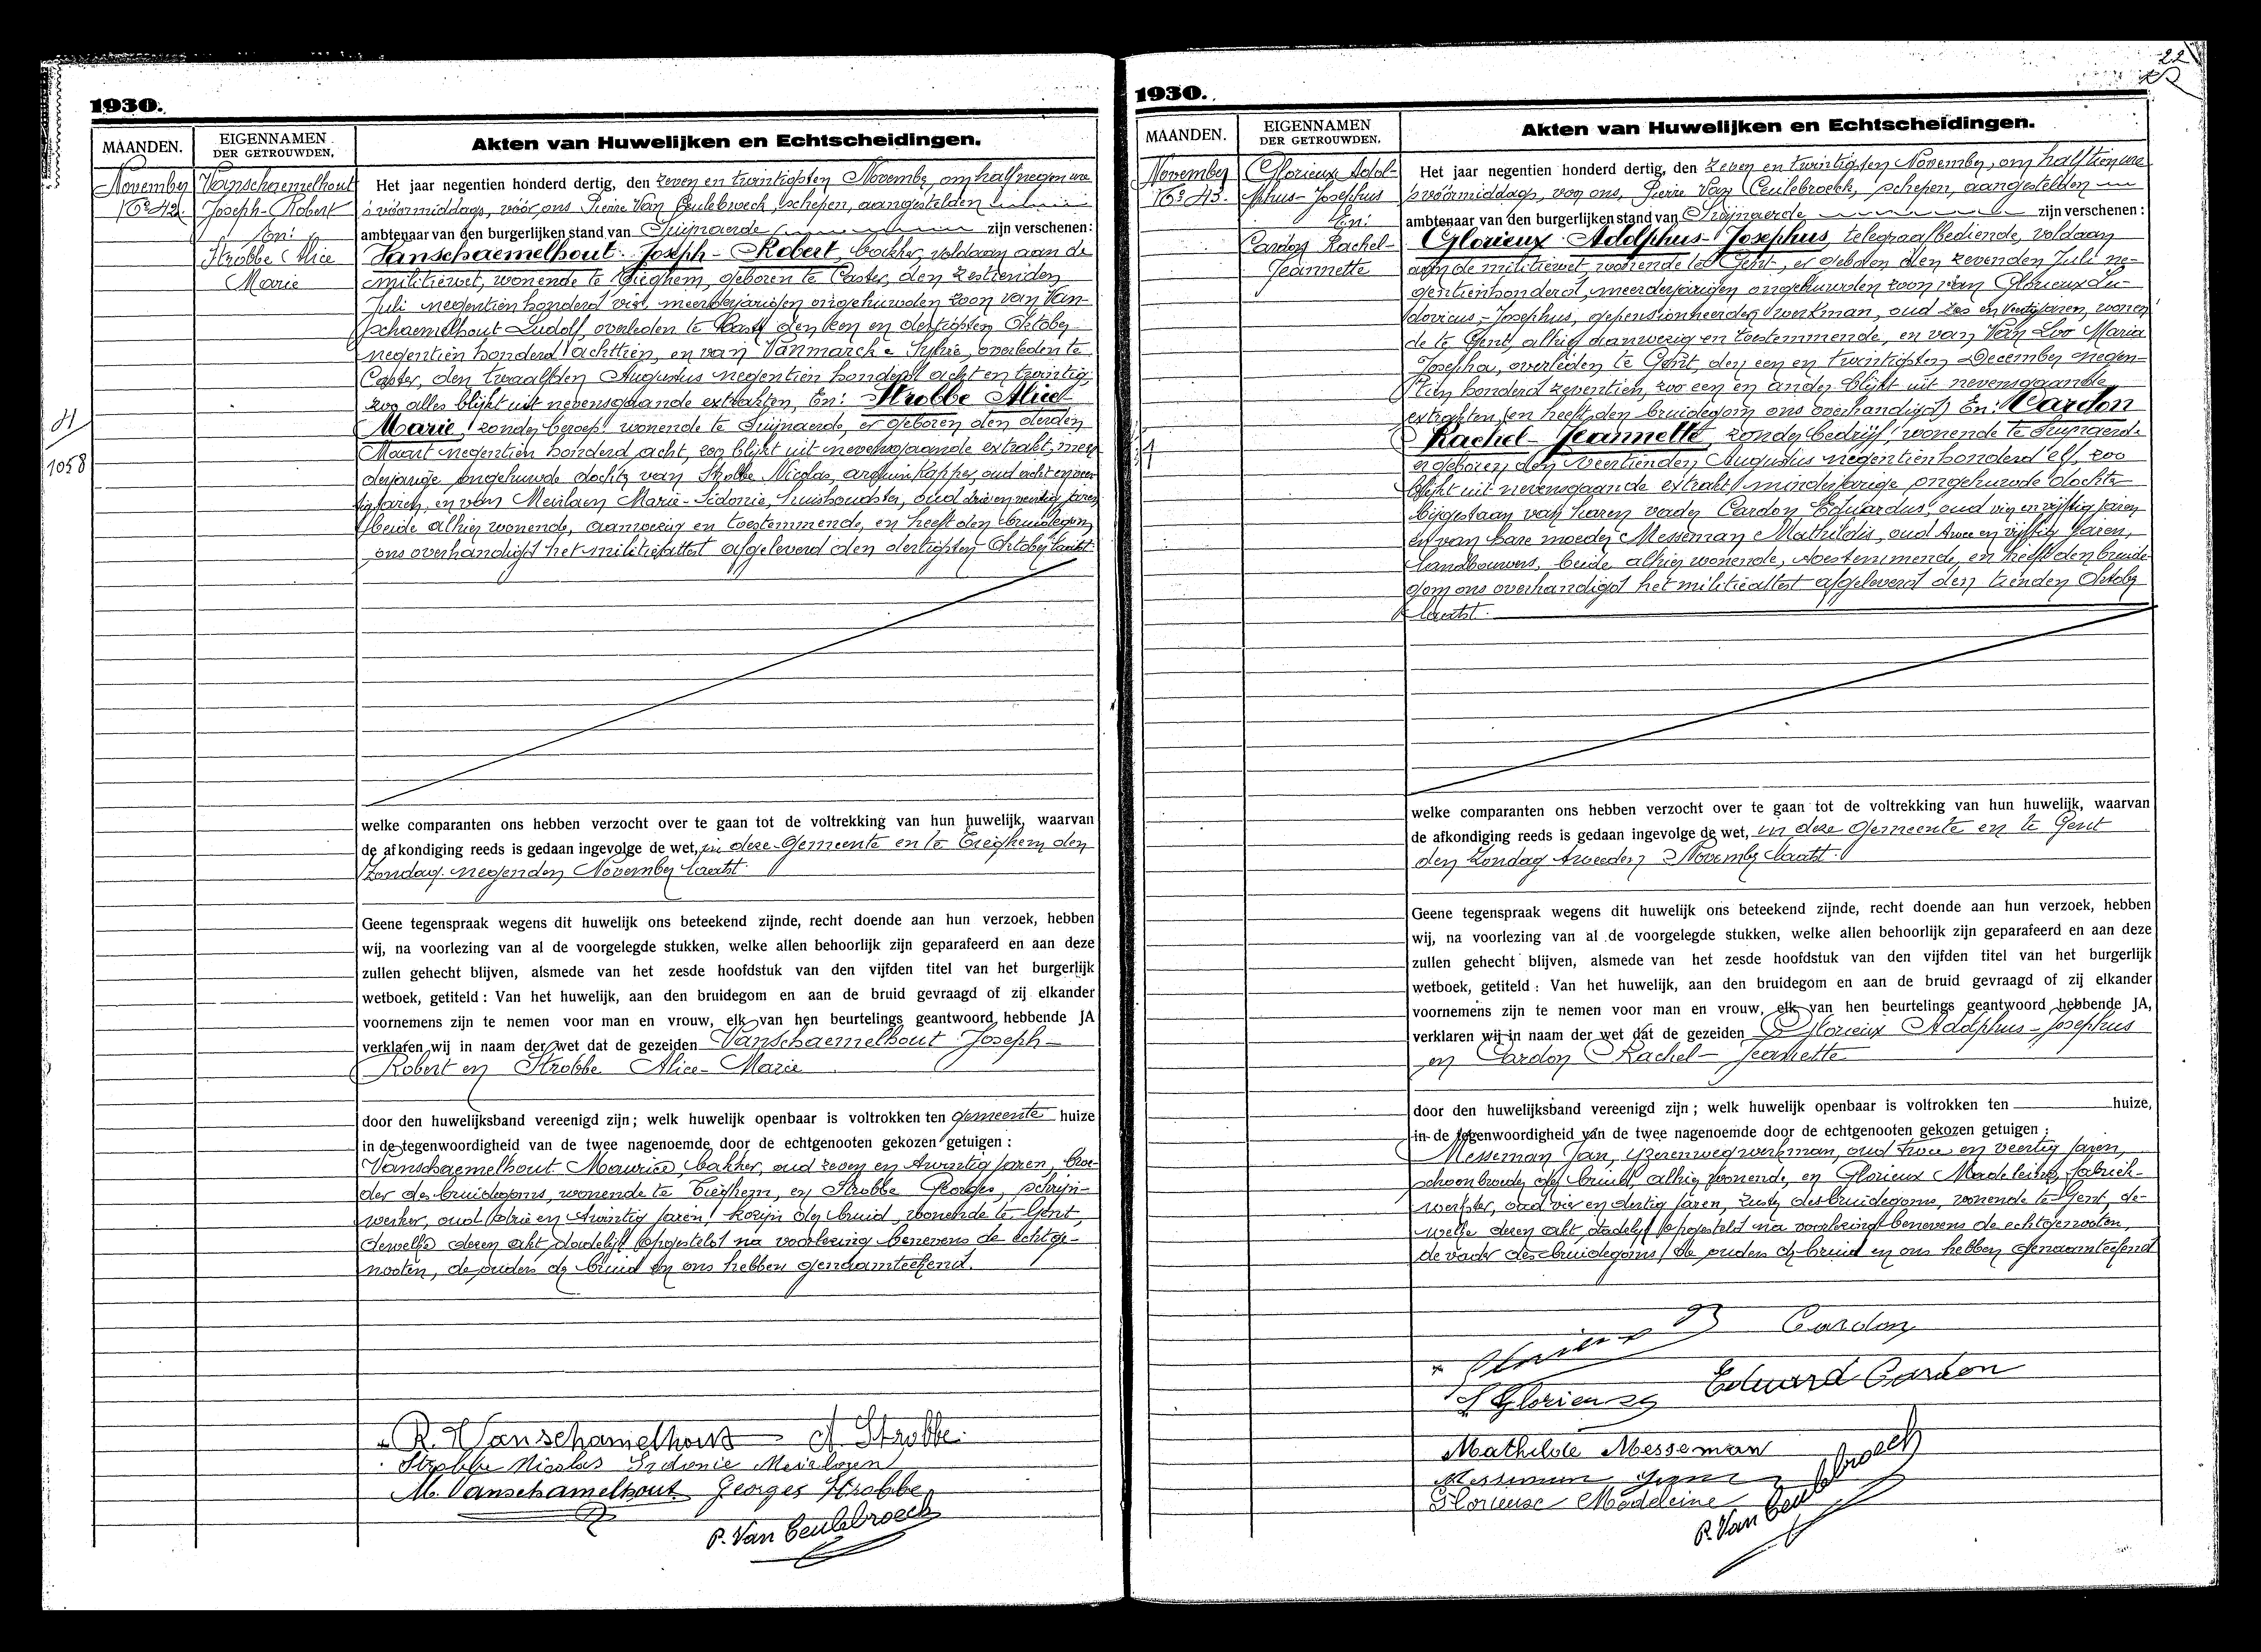 1930.
MAANDEN.
EIGENNAMEN
DER GETROUWDEN.
Akten van Huwelijken en Echtscheidingen.
November
No 42.
Vanschaemelhout
Joseph-Robert
En:
Strobbe Alice
Marie
H
1058
Het jaar negentien honderd dertig, den zeven en twintigsten November, om half negen ure
's vóórmiddags, vóór ons Pierre Van Ceulebroeck, schepen, aangestelden
ambtenaar van den burgerlijken stand van Suijnaerde zijn verschenen:
Vanschaemelhout Joseph-Robert, bakker, voldaan aan de
militiewet, wonende te Tieghem, geboren te Caster, den zestienden
Juli negentien honderd vier, meerderjarigen ongehuwden zoon van Van-
schaemelhout Ludolf, overleden te Caster den een en dertigsten Oktober
negentien honderd achttien, en van Vanmarcke Sylvie, overleden te
Caster, den twaalfden Augustus negentien honderd acht en twintig,
zoo alles blijkt uit nevensgaande extrakten, En: Strobbe Alice
Marie, zonder beroep, wonende te Suijnaerde, er geboren den derden
Maart negentien honderd acht, zoo blijkt uit nevensgaande extrakt, meer
derjarige ongehuwde dochter van Strobbe Nicolas, arduinkapper, oud acht en veer
tig jaren, en van Meulaen Marie-Sidonie, huishoudster, oud drie en veertig jaren
beide alhier wonende, aanwezig en toestemmende, en heeft den bruidegom
ons overhandigd het militieattest afgeleverd den dertigsten Oktober laatst.
welke comparanten ons hebben verzocht over te gaan tot de voltrekking van hun huwelijk, waarvan
de afkondiging reeds is gedaan ingevolge de wet, in deze Gemeente en te Tieghem den
Zondag negenden November laatst.
Geene tegenspraak wegens dit huwelijk ons beteekend zijnde, recht doende aan hun verzoek, hebben
wij, na voorlezing van al de voorgelegde stukken, welke allen behoorlijk zijn geparafeerd en aan deze
zullen gehecht blijven, alsmede van het zesde hoofdstuk van den vijfden titel van het burgerlijk
wetboek, getiteld : Van het huwelijk, aan den bruidegom en aan de bruid gevraagd of zij elkander
voornemens zijn te nemen voor man en vrouw, elk van hen beurtelings geantwoord hebbende JA
verklaren wij in naam der wet dat de gezeiden Vanschaemelhout Joseph-
Robert en Strobbe Alice-Marie
door den huwelijksband vereenigd zijn; welk huwelijk openbaar is voltrokken ten gemeente huize
in de tegenwoordigheid van de twee nagenoemde door de echtgenooten gekozen getuigen :
Vanschaemelhout Maurice, bakker, oud zeven en twintig jaren, broe-
der des bruidegoms, wonende te Tieghem, en Strobbe Georges, schrijn-
werker, oud drie en twintig jaren, kozijn der bruid, wonende te Gent,
dewelke dezen akt, dadelijk opgesteld na voorlezing benevens de echtge-
nooten, de ouders der bruid en ons hebben genaamteekend.
R. Vanschamelhout A. Strobbe
Strobbe Nicolas Sidonie Meulaen
M. Vanschamelhout Georges Strobbe
P. Van Ceulebroeck
22
1930.
MAANDEN.
EIGENNAMEN
DER GETROUWDEN.
Akten van Huwelijken en Echtscheidingen.
November
No 43.
Glorieux Adol-
phus-Josephus
En:
Cardon Rachel-
Jeannette
Het jaar negentien honderd dertig, den zeven en twintigsten November, om half tien ure
's vóórmiddags, voor ons, Pierre Van Ceulebroeck, schepen, aangestelden
ambtenaar van den burgerlijken stand van Suijnaerde zijn verschenen:
Glorieux Adolphus-Josephus, telegraafbediende, voldaan
aan de militiewet, wonende te Gent, er geboren den zevenden Juli ne-
gentienhonderd, meerderjarigen ongehuwden zoon van Glorieux Lu-
dovicus-Josephus, gepensionneerden werkman, oud zes en veertig jaren, wonen
de te Gent, alhier aanwezig en toestemmende, en van Van Loo Maria
Josepha, overleden te Gent, den een en twintigsten December negen-
tien honderd zeventien, zoo een en ander blijkt uit nevensgaande
extrakten (en heeft den bruidegom ons overhandigd) En: Cardon
Rachel-Jeannette, zonder bedrijf, wonende te Suijnaerde
er geboren den veertienden Augustus negentienhonderd elf, zoo
blijkt uit nevensgaande extrakt, minderjarige ongehuwde dochter
bijgestaan van haren vader Cardon Eduardus, oud vier en vijftig jaren
en van hare moeder Messeman Mathildis, oud twee en vijftig jaren,
landbouwers, beide alhier wonende, toestemmende, en heeft den bruide
gom ons overhandigd het militieattest afgeleverd den tienden Oktober
laatst.
welke comparanten ons hebben verzocht over te gaan tot de voltrekking van hun huwelijk, waarvan
de afkondiging reeds is gedaan ingevolge de wet, in deze Gemeente en te Gent
den Zondag tweeden November laatst.
Geene tegenspraak wegens dit huwelijk ons beteekend zijnde, recht doende aan hun verzoek, hebben
wij, na voorlezing van al de voorgelegde stukken, welke allen behoorlijk zijn geparafeerd en aan deze
zullen gehecht blijven, alsmede van het zesde hoofdstuk van den vijfden titel van het burgerlijk
wetboek, getiteld : Van het huwelijk, aan den bruidegom en aan de bruid gevraagd of zij elkander
voornemens zijn te nemen voor man en vrouw, elk van hen beurtelings geantwoord hebbende JA,
verklaren wij in naam der wet dat de gezeiden Glorieux Adolphus-Josephus
en Cardon Rachel-Jeanette
door den huwelijksband vereenigd zijn; welk huwelijk openbaar is voltrokken ten huize,
in de tegenwoordigheid van de twee nagenoemde door de echtgenooten gekozen getuigen :
Messeman Jan, ijzerenwegwerkman, oud twee en veertig jaren,
schoonbroeder der bruid, alhier wonende, en Glorieux Madeleine, fabriek-
werkster, oud vier en dertig jaren, zuster des bruidegoms, wonende te Gent, de-
welke dezen akt, dadelijk opgesteld na voorlezing benevens de echtgenooten,
de vader des bruidegoms, de ouders der bruid en ons hebben genaamteekend
Cardon
Glorieux
Eduard Cardon
Mathilde Messeman
Messeman
Glorieux Madeleine
P. Van Ceulebroeck